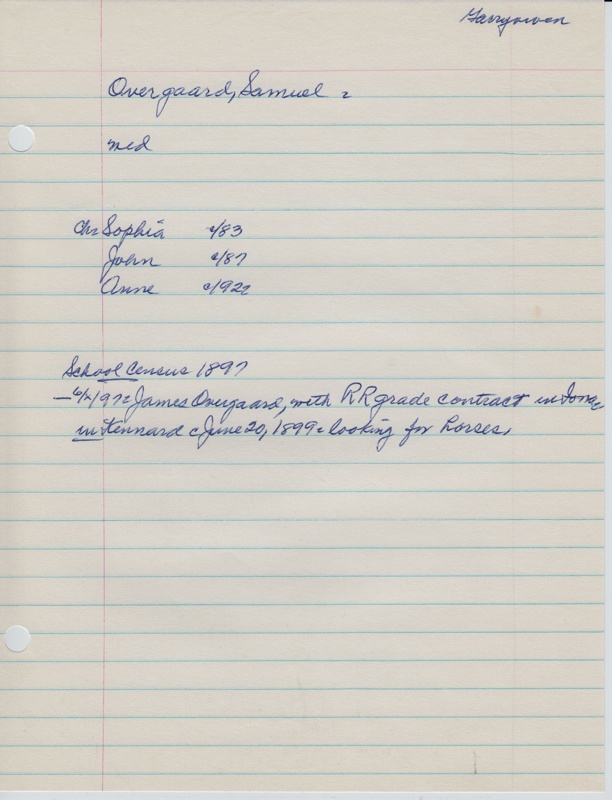 Garryowen
Overgaard, Samuel =
med
ch= Sophia c/83
John c/87
Anne c/92=
School Census 1897
James Overgaard, with RR grade contract in Iowa
in Kennard c June 20, 1899 = looking for horses.